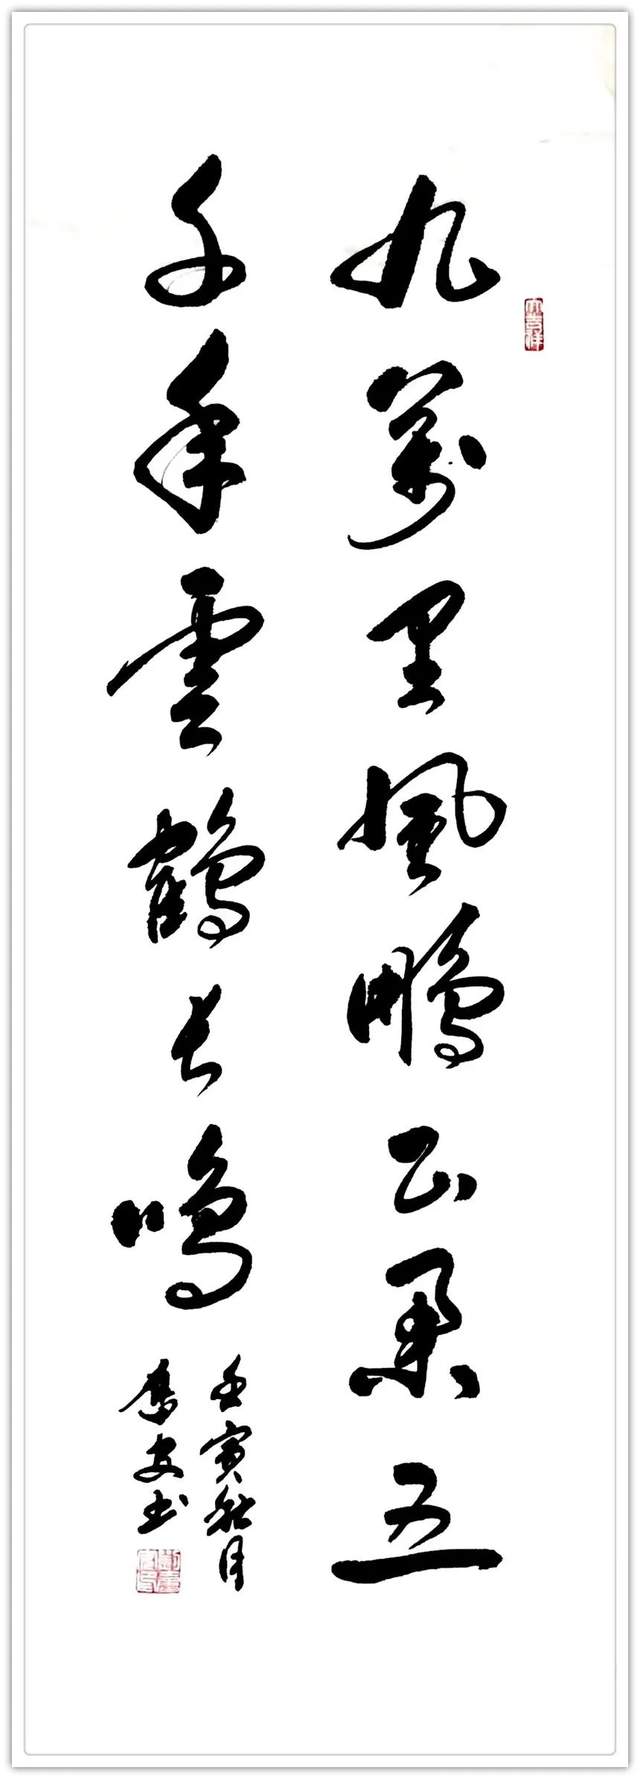 九萬里風鵬正舉五
千年雲鶴長鳴
壬寅秋月
書
大吉祥